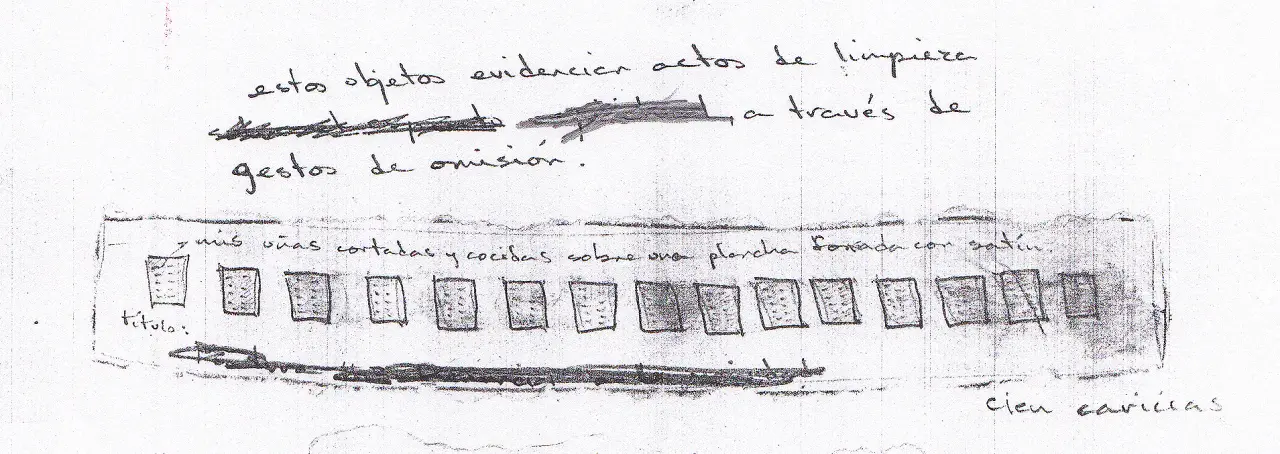 estos objetos evidencian actos de limpieza
, a través de
gestos de omisión.
mis uñas cortadas y cocidas sobre una plancha forrada con satín
título:
cien caricias